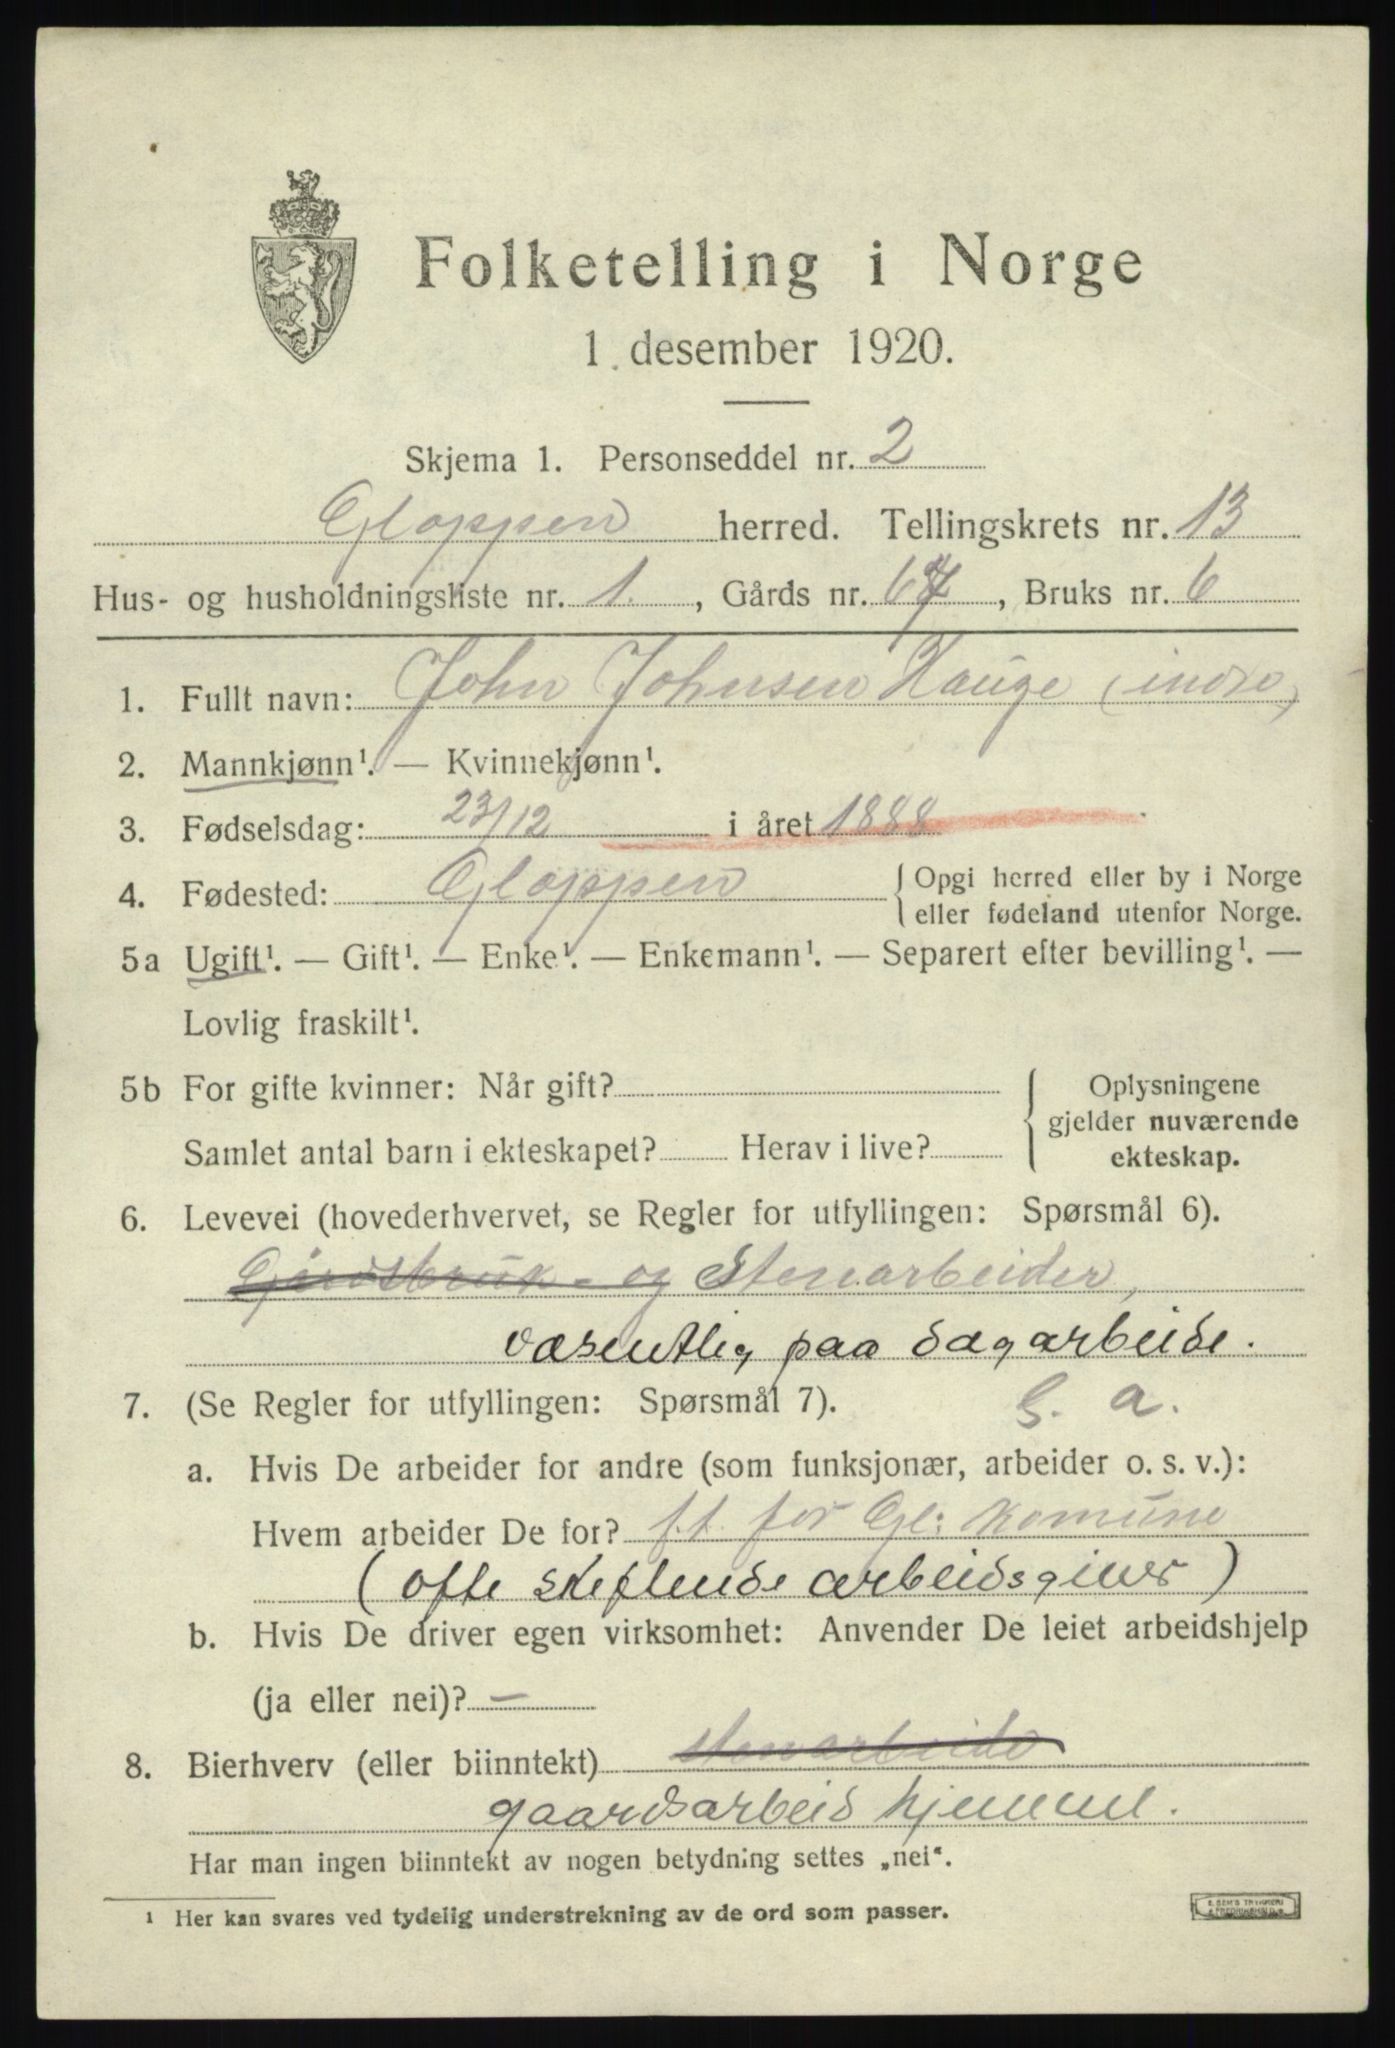 Folketelling i Norge
1. desember 1920.
Skjema 1. Personseddel nr. 2
Gloppen herred. Tellingskrets nr. 13
Hus- og husholdningsliste nr. 1. , Gårds nr. 67 , Bruks nr. 6
1. Fullt navn: John Johnsen Hauge (indre)
2. Mannkjønn¹. — Kvinnekjønn¹.
3. Fødselsdag: 23/12 i året 1888
4. Fødested: Gloppen { Opgi herred eller by i Norge
eller fødeland utenfor Norge.
5a Ugift¹. — Gift¹. — Enke¹. — Enkemann¹. — Separert efter bevilling¹. —
Lovlig fraskilt¹.
5b For gifte kvinner: Når gift? { Oplysningene
gjelder nuværende
Samlet antal barn i ekteskapet? Herav i live? ekteskap.
6. Levevei (hovederhvervet, se Regler for utfyllingen: Spørsmål 6).
Gårdsbruk - og Stenarbeider,
væsentlig paa dagarbeide.
7. (Se Regler for utfyllingen: Spørsmål 7). G. a.
a. Hvis De arbeider for andre (som funksjonær, arbeider o. s. v.):
Hvem arbeider De for? f.t. for Gl: Komune
(ofte skiftende arbeidsgiver)
b. Hvis De driver egen virksomhet: Anvender De leiet arbeidshjelp
(ja eller nei)? —
8. Bierhverv (eller biinntekt) stenarbeide
gaardsarbeid hjemme.
Har man ingen biinntekt av nogen betydning settes „nei“.
¹ Her kan svares ved tydelig understrekning av de ord som passer.